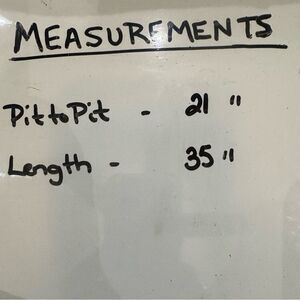 MEASUREMENTS
Pit to Pit - 21 "
Length - 35 "